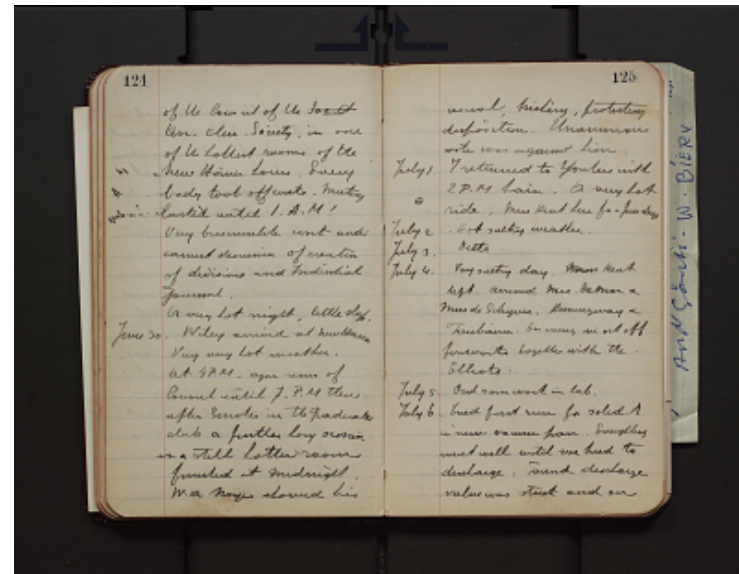 124
of the Council of the
Am. Chem. Society, in one
of the hottest rooms of the
New Haven House. Every
body took off coats. Meeting
lasted until 1. A.M!
Very businesslike and
earnest discussion of creation
of divisions and Industrial
Journal.
A very hot night, little sleep.
June 30. Wiley arrived at
Very very hot weather.
At 4 P.M. again
Council until 7. P.M then
after in the graduate
club a further long session
in a still hotter room
finished at midnight.
W.A. Noyes showed his
125
usual, protesting
disposition. Unanimous
vote was against him
July 1. I returned to Yonkers with
2 P.M train. A very hot
ride, here for a few days
July 2 Hot sultry weather.
July 3. Ditto
July 4. Very sultry day.
left. arrived Mrs.
&
Evening went off
fireworks together with the
July 5. Did some work in lab.
July 6. Tried first run for
in new vacuum pan. Everything
went well until we had to
discharge. Found discharge
valve was stuck and on
AND GÄRTI - W. BIERY